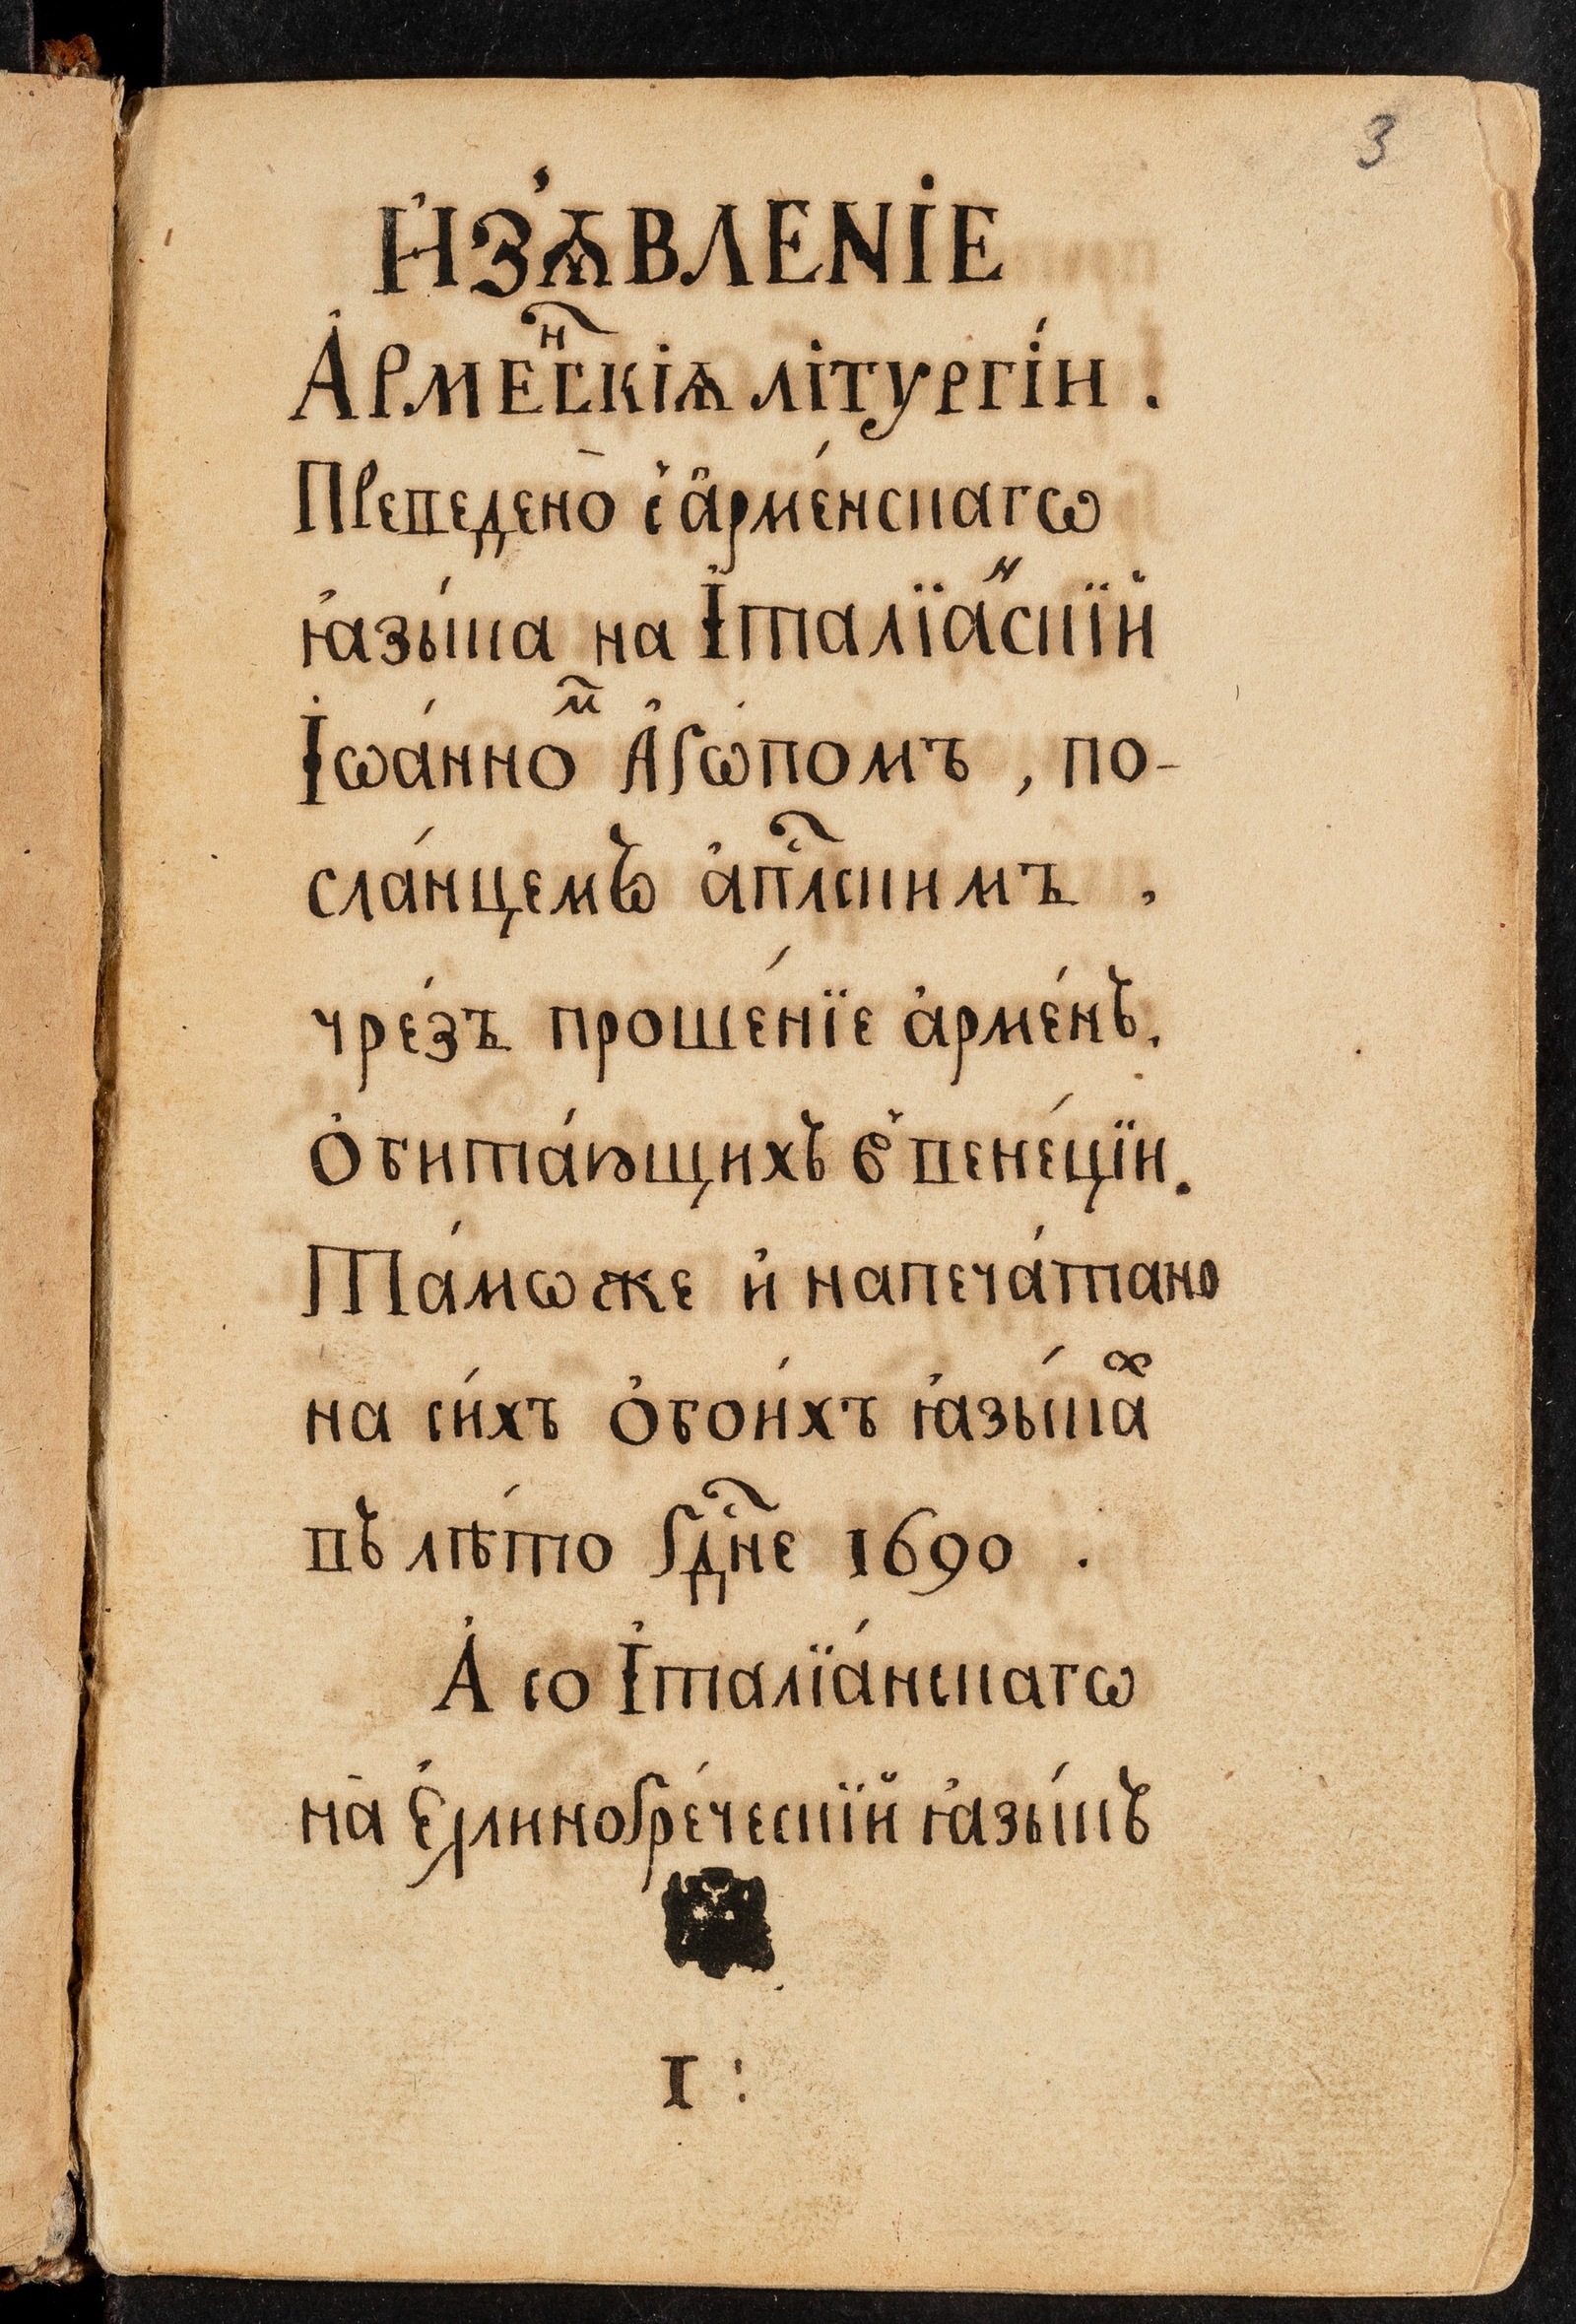 3
И҆ЗѦ҆ВЛЕНІЕ
А҆РМЕⷩ҇СКІѦ ЛІТУРГІ́И .
Преведено̀ с̾ а҆рме́нскагѡ
ꙗ҆зы́ка на І҆талїаⷩскїй
І҆ѡа́нноⷨ҇ А҆гѡ́помъ , по-
сла́нцемъ а҆пⷭ҇лскимъ ,
чре́зъ проше́нїе а҆рме́нъ.
Ѻ҆бита́ющихъ в̾ вене́цїи.
Та́мѡже и҆ напеча́тано
на си́хъ ѻ҆бои́хъ ꙗ҆зы́каⷯ
въ лѣ́то гдⷭ҇не 1690 .
А҆ со І҆талїа́нскагѡ
на̀ є҆ллиногре́ческїй ꙗ҆зы́къ
1 :